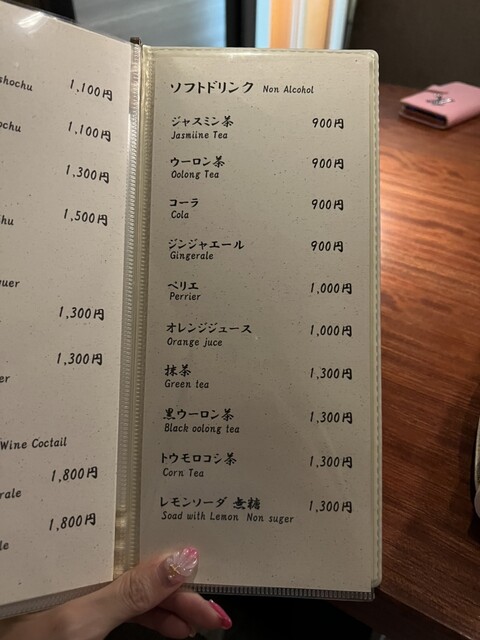 shochu 1,100円
ochu 1,100円
1,300円
hu 1,500円
uer
1,300円
er 1,300円
Wine Coctail
1,800円
rale
1,800円
le
ソフトドリンク Non Alcohol
ジャスミン茶 900円
Jasmiine Tea
ウーロン茶 900円
Oolong Tea
コーラ 900円
Cola
ジンジャエール 900円
Gingerale
ペリエ 1,000円
Perrier
オレンジジュース 1,000円
Orange juce
抹茶 1,300円
Green tea
黒ウーロン茶 1,300円
Black oolong tea
トウモロコシ茶 1,300円
Corn Tea
レモンソーダ 無糖 1,300円
Soad with Lemon Non suger